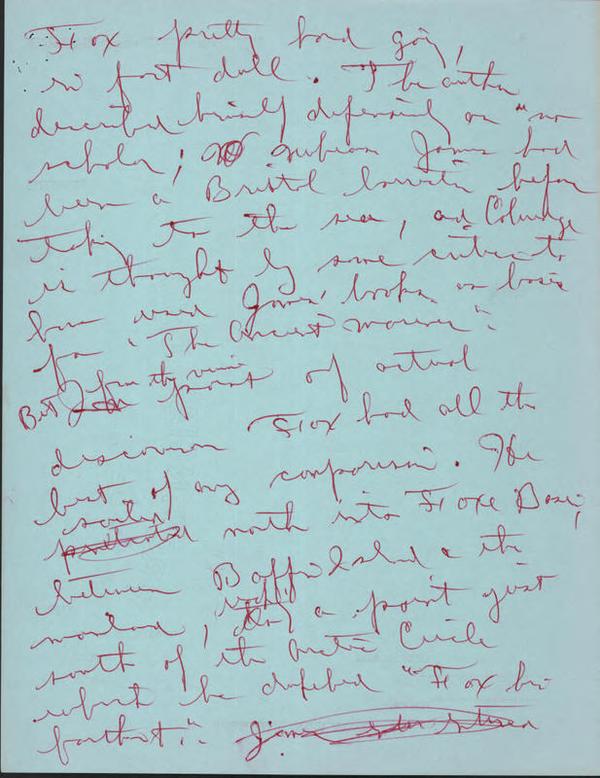 Fox pretty hard going,
in fact dull. The author
described himself defensively as "no
scholar; whereas James had
been a Bristol barrister before
taking to the sea, and Coleridge
is thought by some critics to
have used James' books as basis
for "The Ancient Mariner".
But from the view point of actual
discoveries Fox had all the
best of any comparison. He
sailed north into Foxe Basin,
between Baffin Island & the
mainland, reaching a point just
south of the Arctic Circle
which he dubbed "Fox his
farthest."